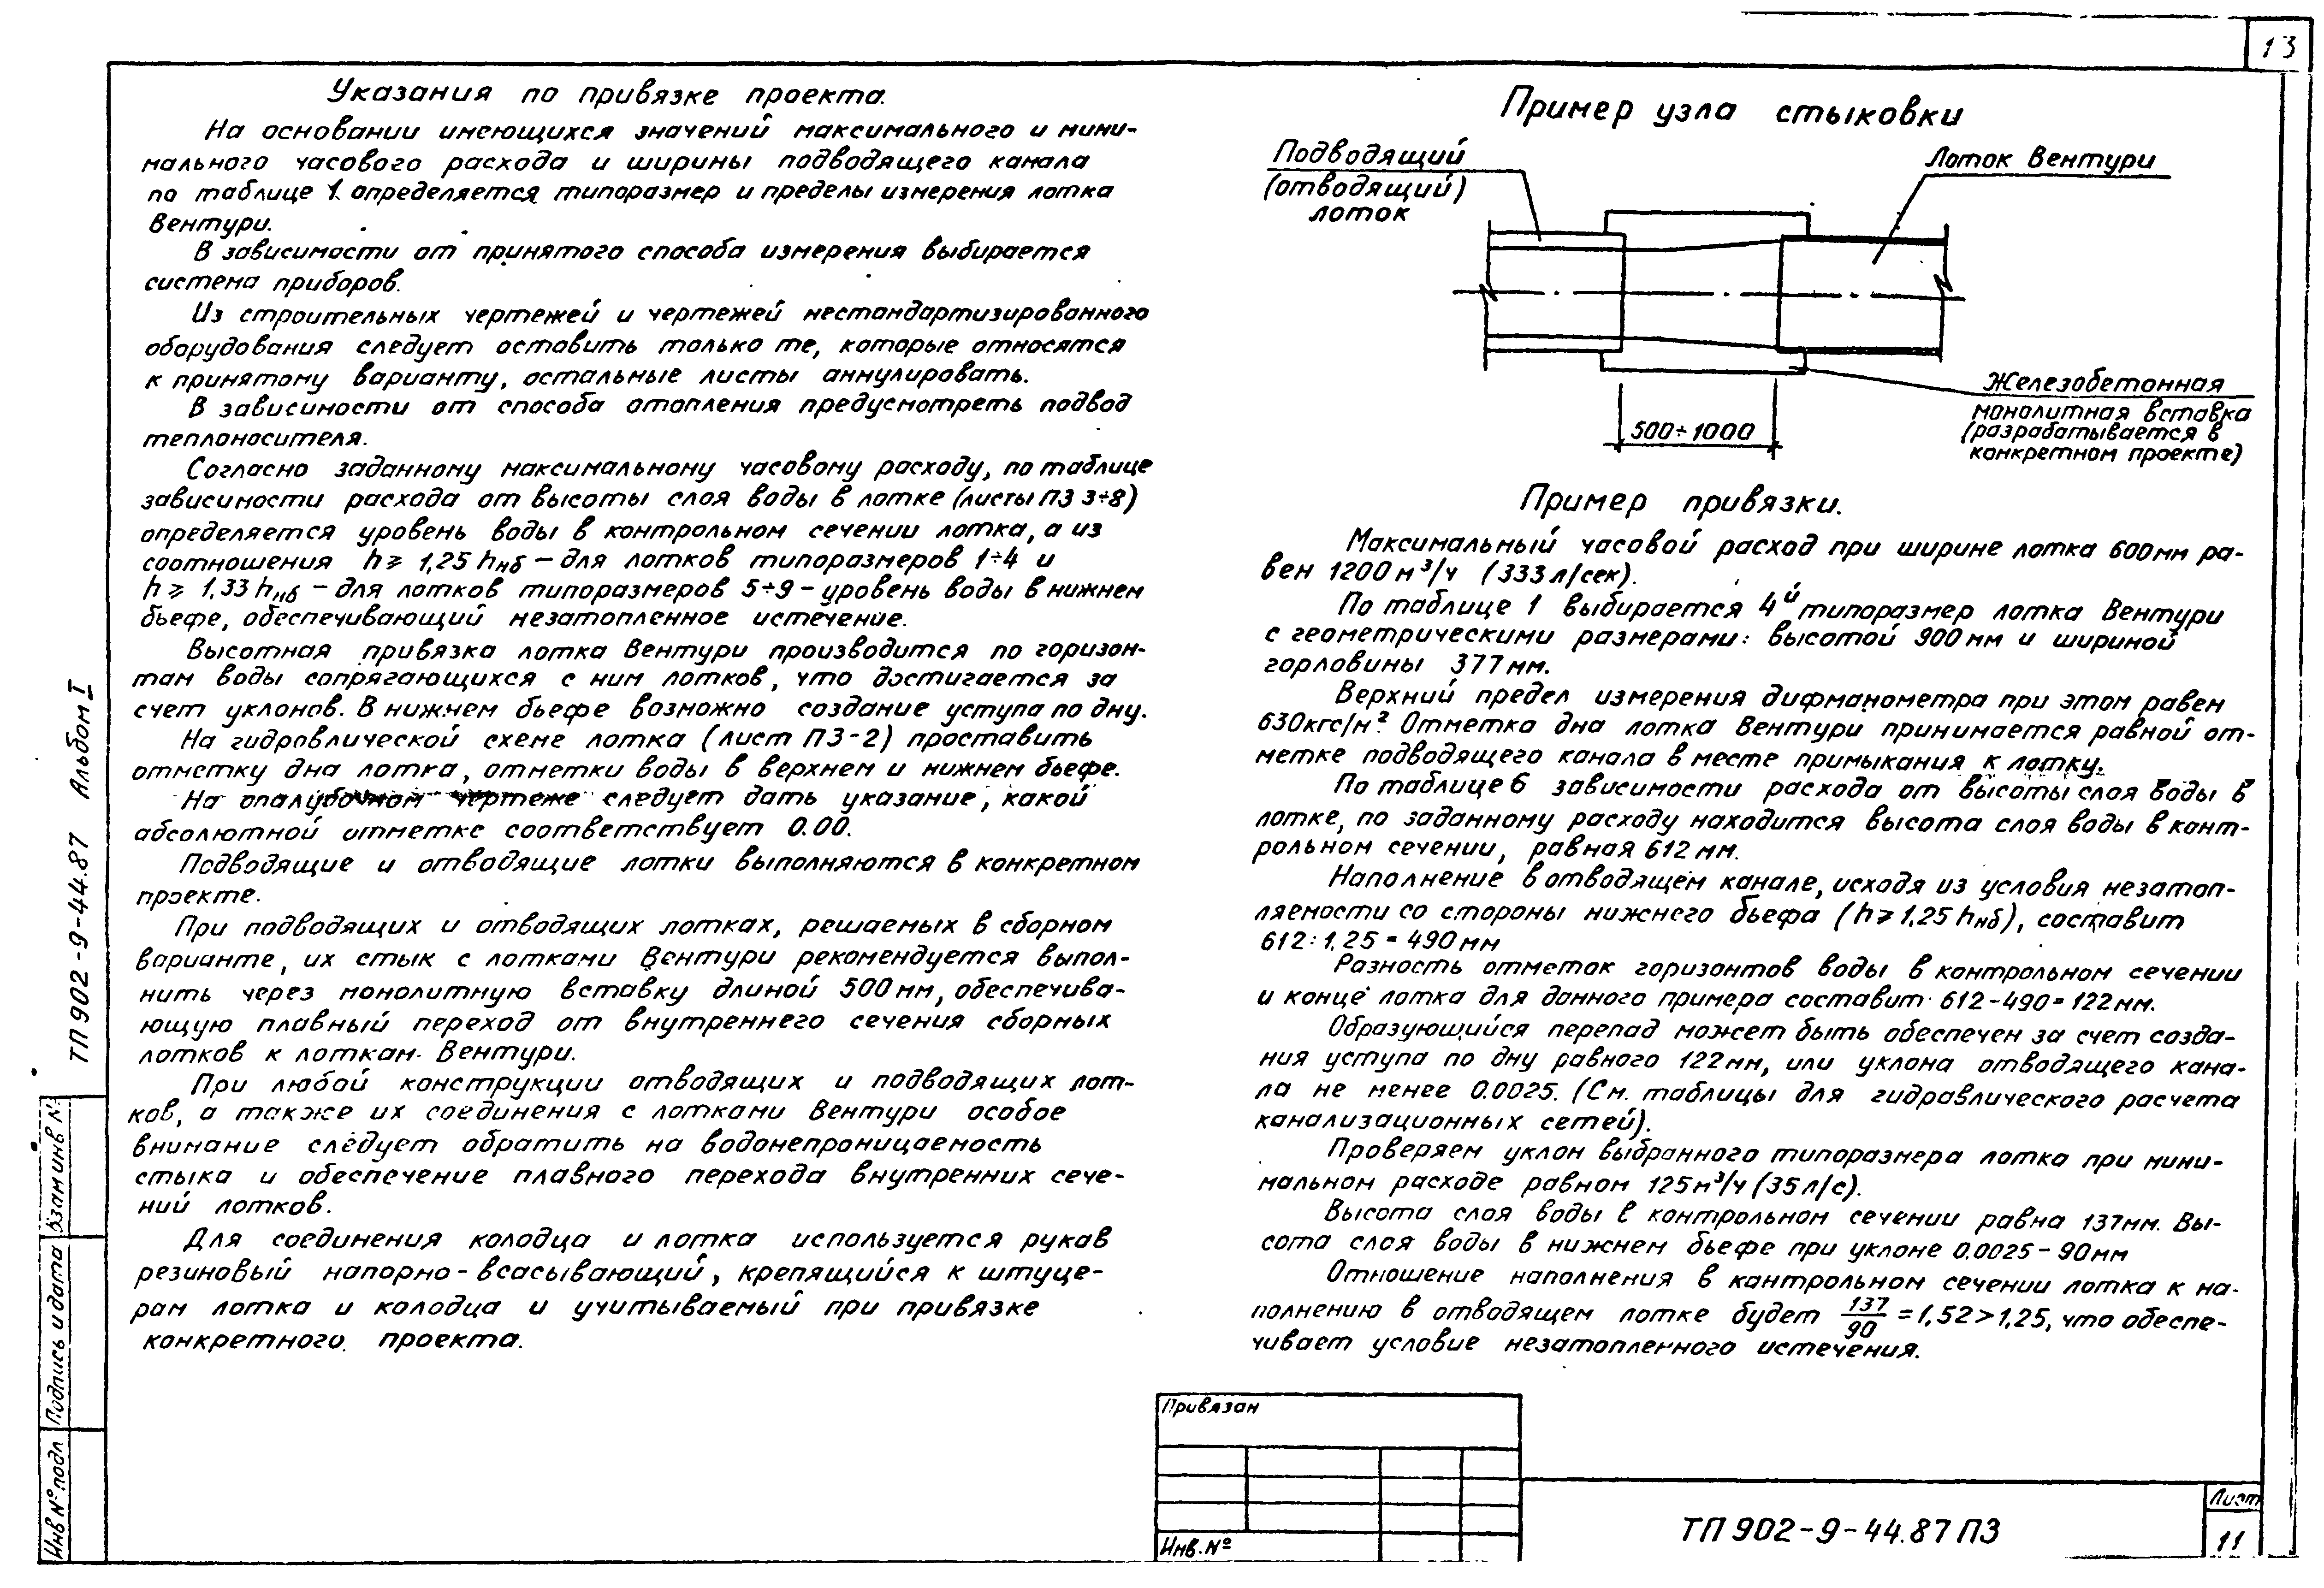 13
Указания по привязке проекта.
На основании имеющихся значений максимального и мини-
мального часового расхода и ширины подводящего канала
по таблице 1. определяется типоразмер и пределы измерения лотка
Вентури.
В зависимости от принятого способа измерения выбирается
система приборов.
Из строительных чертежей и чертежей нестандартизированного
оборудования следует оставить только те, которые относятся
к принятому варианту, остальные листы аннулировать.
В зависимости от способа отопления предусмотреть подвод
теплоносителя.
Согласно заданному максимальному часовому расходу, по таблице
зависимости расхода от высоты слоя воды в лотке (листы ПЗ 3÷8)
определяется уровень воды в контрольном сечении лотка, а из
соотношения h ⩾ 1,25 hнб – для лотков типоразмеров 1÷4 и
h ⩾ 1,33 hнб – для лотков типоразмеров 5÷9 – уровень воды в нижнем
бьефе, обеспечивающий незатопленное истечение.
Высотная привязка лотка Вентури производится по горизон-
там воды сопрягающихся с ним лотков, что достигается за
счет уклонов. В нижнем бьефе возможно создание уступа по дну.
На гидровлической схеме лотка (лист ПЗ-2) проставить
отметку дна лотка, отметки воды в верхнем и нижнем бьефе.
На опалубочном чертеже следует дать указание, какой
абсолютной отметке соответствует 0.00.
Подводящие и отводящие лотки выполняются в конкретном
проекте.
При подводящих и отводящих лотках, решаемых в сборном
варианте, их стык с лотками Вентури рекомендуется выпол-
нить через монолитную вставку длиной 500 мм, обеспечива-
ющую плавный переход от внутреннего сечения сборных
лотков к лоткам Вентури.
При любой конструкции отводящих и подводящих лот-
ков, а также их соединения с лотками Вентури особое
внимание следует обратить на водонепроницаемость
стыка и обеспечение плавного перехода внутренних сече-
ний лотков.
Для соединения колодца и лотка используется рукав
резиновый напорно-всасывающий, крепящийся к штуце-
рам лотка и колодца и учитываемый при привязке
конкретного проекта.
Пример узла стыковки
Подводящий
(отводящий)
лоток
Лоток Вентури
Железобетонная
монолитная вставка
(разрабатывается в
конкретном проекте)
500÷1000
Пример привязки.
Максимальный часовой расход при ширине лотка 600мм ра-
вен 1200 м³/ч (333 л/сек).
По таблице 1 выбирается 4й типоразмер лотка Вентури
с геометрическими размерами: высотой 900 мм и шириной
горловины 377 мм.
Верхний предел измерения дифманометра при этом равен
630кгс/м². Отметка дна лотка Вентури принимается равной от-
метке подводящего канала в месте примыкания к лотку.
По таблице 6 зависимости расхода от высоты слоя воды в
лотке, по заданному расходу находится высота слоя воды в конт-
рольном сечении, равная 612 мм.
Наполнение в отводящем канале, исходя из условия незатоп-
ляемости со стороны нижнего бьефа (h ⩾ 1,25 hнб), составит
612 : 1,25 = 490 мм
Разность отметок горизонтов воды в контрольном сечении
и конце лотка для данного примера составит 612-490=122 мм.
Образующийся перепад может быть обеспечен за счет созда-
ния уступа по дну равного 122 мм, или уклона отводящего кана-
ла не менее 0.0025. (См. таблицы для гидравлического расчета
канализационных сетей).
Проверяем уклон выбранного типоразмера лотка при мини-
мальном расходе равном 125 м³/ч (35 л/с).
Высота слоя воды в контрольном сечении равна 137мм. Вы-
сота слоя воды в нижнем бьефе при уклоне 0.0025 – 90 мм
Отношение наполнения в контрольном сечении лотка к на-
полнению в отводящем лотке будет 137/90 = 1,52 > 1,25, что обеспе-
чивает условие незатопленного истечения.
Привязан
Инв. №
ТП 902-9-44.87 ПЗ
Лист
11
ТП 902-9-44.87 Альбом I
Взам инв №
Подпись и дата
Инв № подл